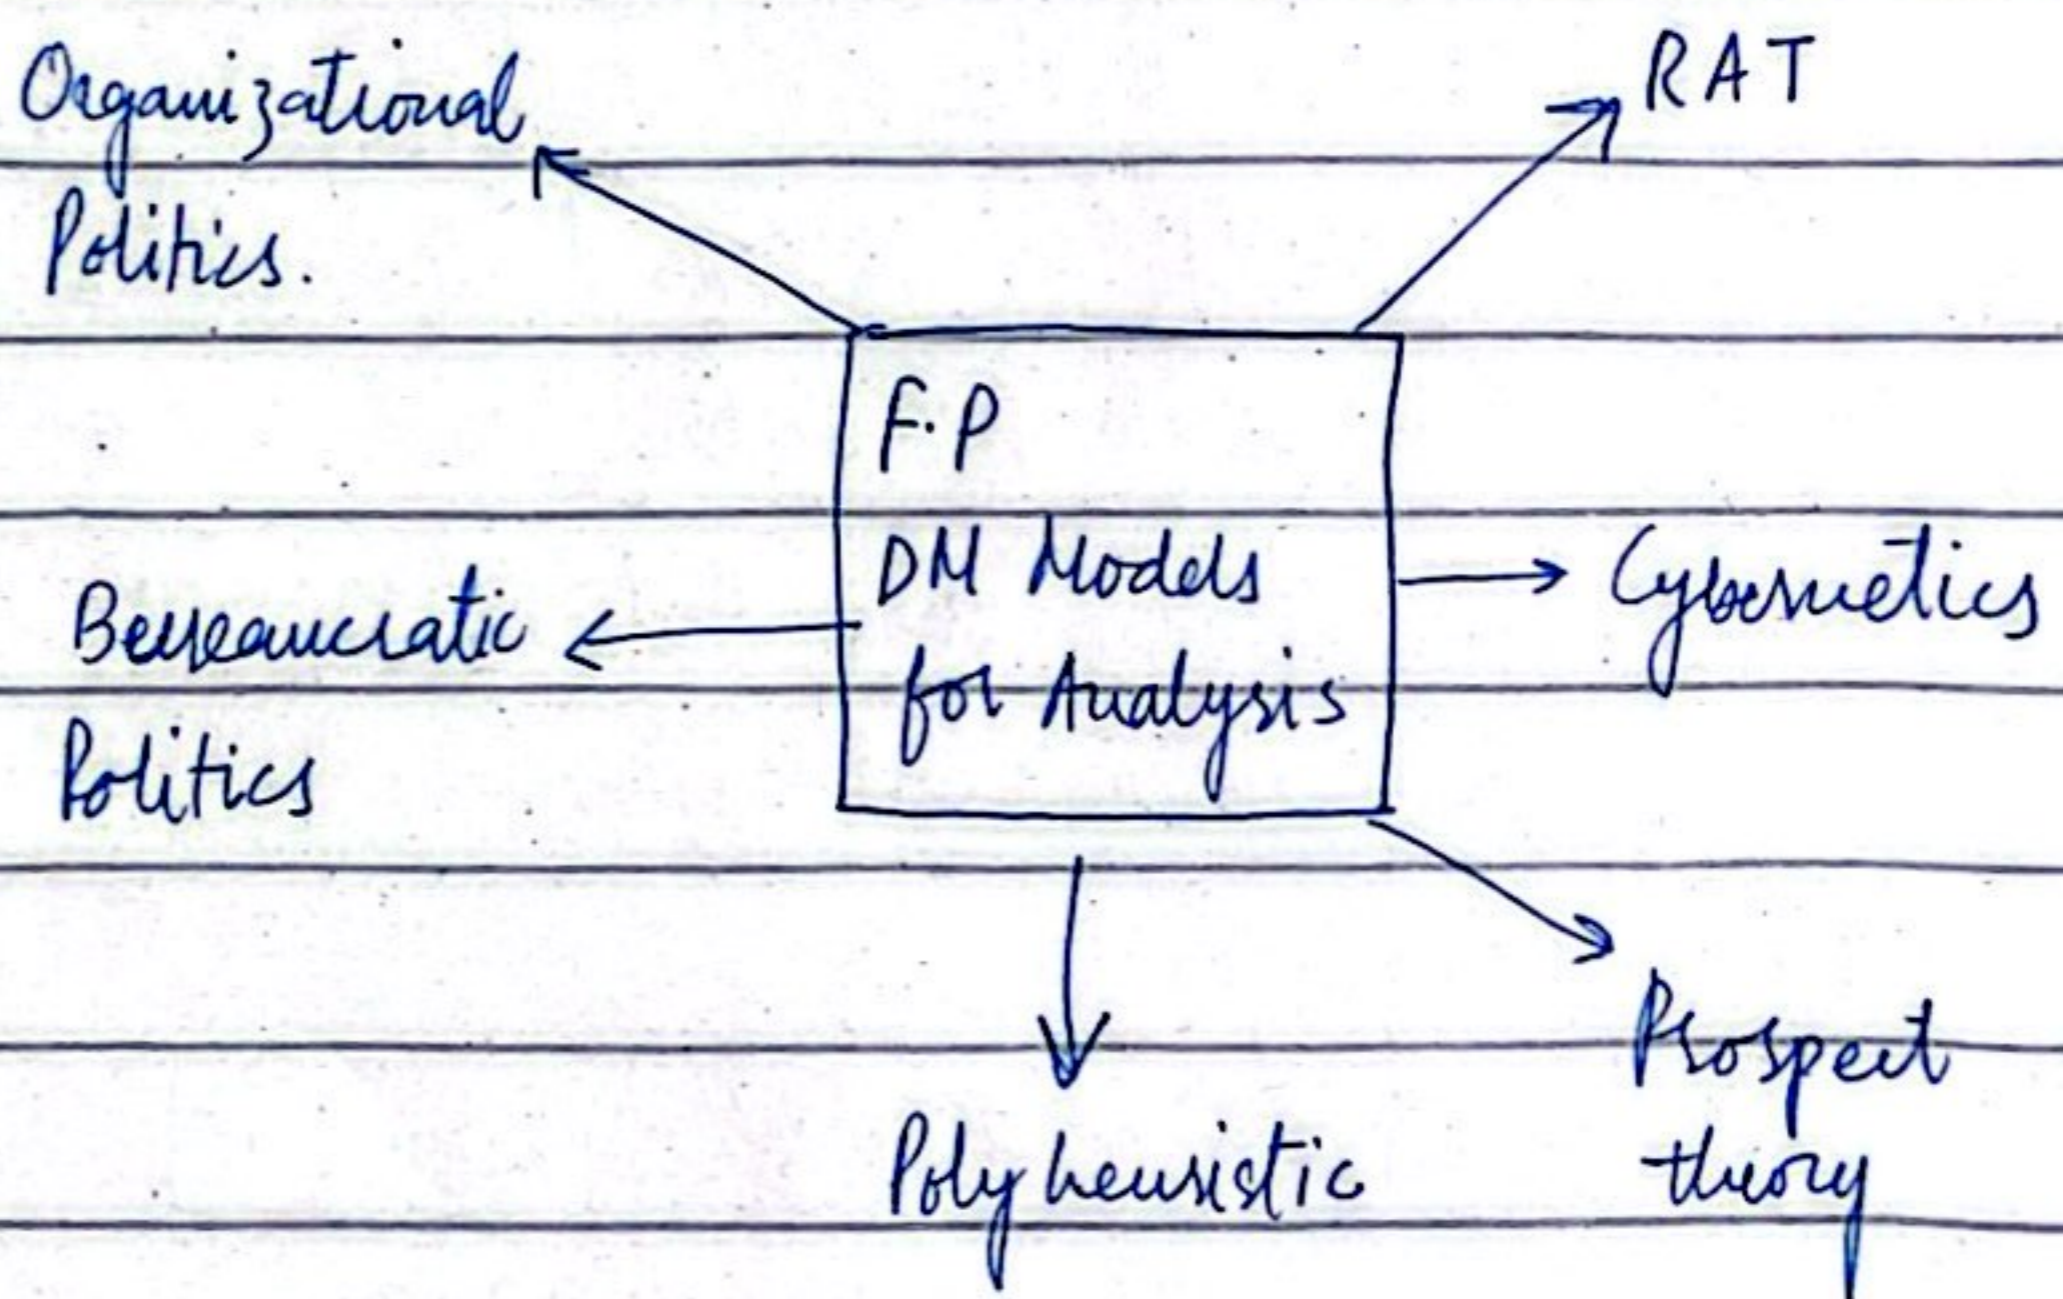 Organizational
Politics.
RAT
F.P
DM Models
for Analysis
Bureaucratic
Politics
Cybernetics
Polyheuristic
Prospect
theory